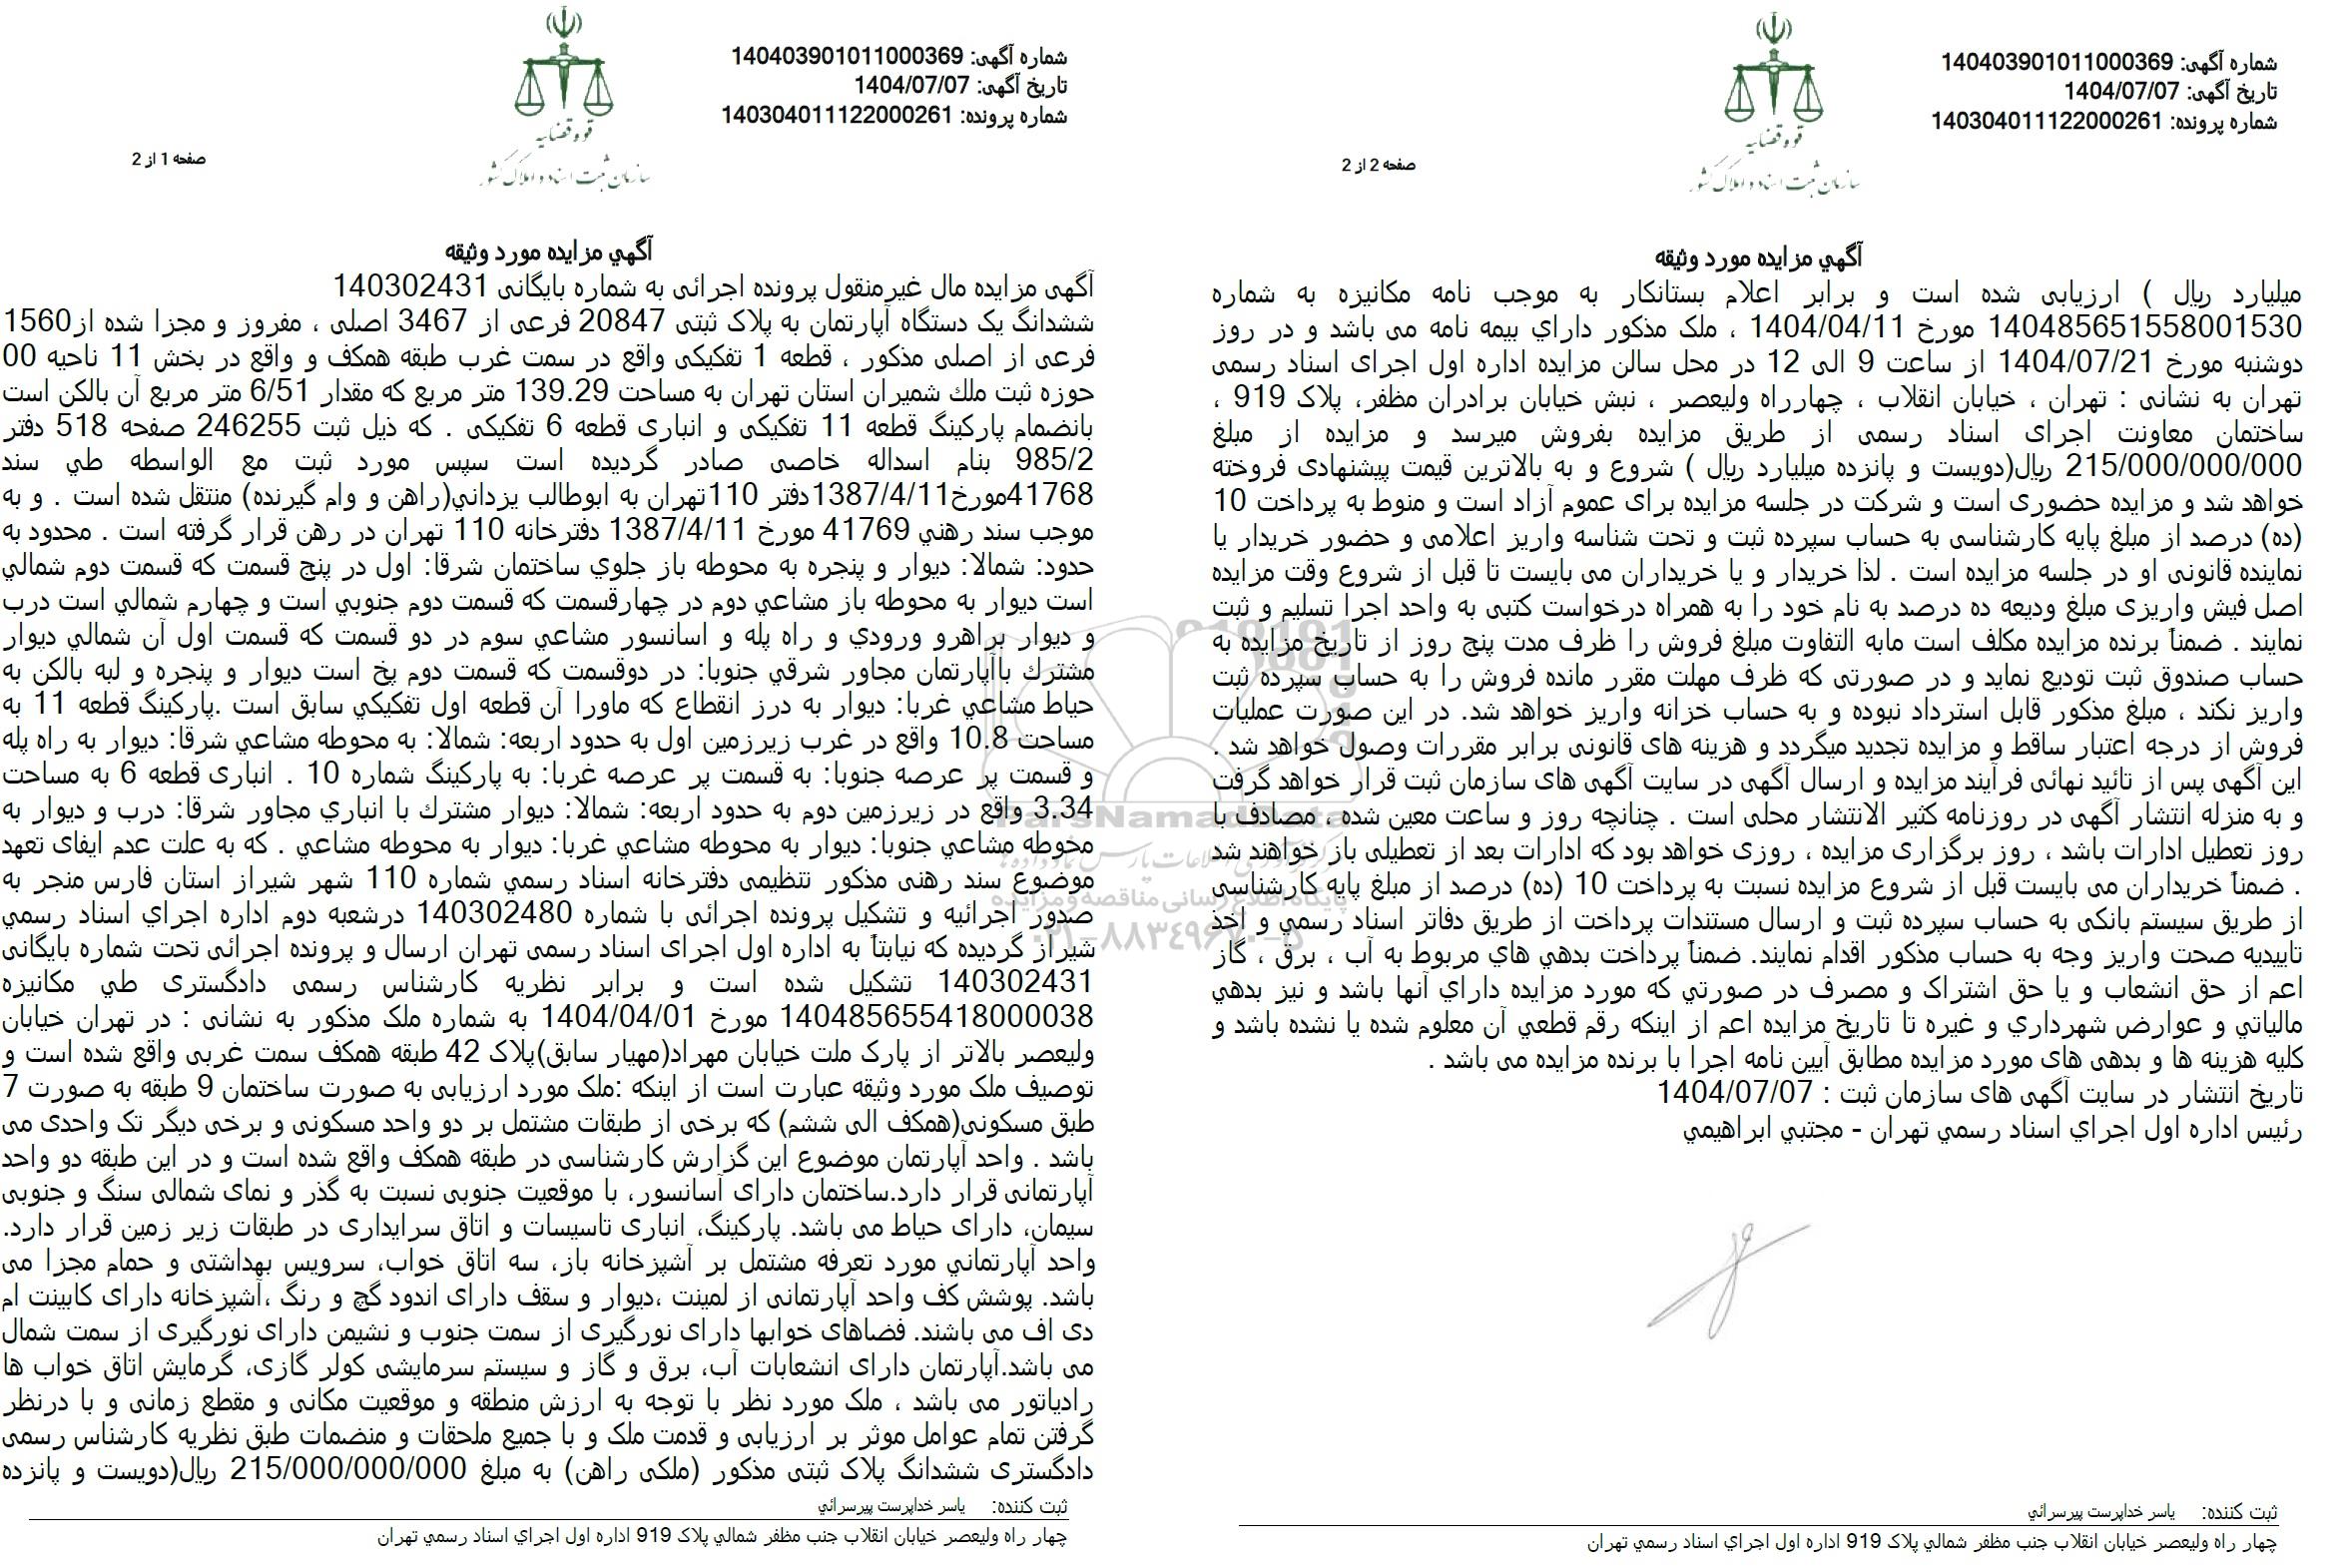 شماره آگهی: 140403901011000369
تاریخ آگهی: 1404/07/07
شماره پرونده: 140304011122000261
قوه قضاییه
سازمان ثبت اسناد و املاک کشور
صفحه 1 از 2
آگهي مزایده مورد وثیقه
آگهی مزایده مال غیرمنقول پرونده اجرائی به شماره بایگانی 140302431
ششدانگ یک دستگاه آپارتمان به پلاک ثبتی 20847 فرعی از 3467 اصلی ، مفروز و مجزا شده از1560
فرعی از اصلی مذکور ، قطعه 1 تفکیکی واقع در سمت غرب طبقه همکف و واقع در بخش 11 ناحیه 00
حوزه ثبت ملك شمیران استان تهران به مساحت 139.29 متر مربع که مقدار 6/51 متر مربع آن بالکن است
بانضمام پارکینگ قطعه 11 تفکیکی و انباری قطعه 6 تفکیکی . که ذیل ثبت 246255 صفحه 518 دفتر
985/2 بنام اسداله خاصی صادر گردیده است سپس مورد ثبت مع الواسطه طي سند
41768مورخ1387/4/11دفتر 110تهران به ابوطالب یزداني(راهن و وام گیرنده) منتقل شده است . و به
موجب سند رهني 41769 مورخ 1387/4/11 دفترخانه 110 تهران در رهن قرار گرفته است . محدود به
حدود: شمالا: دیوار و پنجره به محوطه باز جلوي ساختمان شرقا: اول در پنج قسمت که قسمت دوم شمالي
است دیوار به محوطه باز مشاعي دوم در چهارقسمت که قسمت دوم جنوبي است و چهارم شمالي است درب
و دیوار براهرو ورودي و راه پله و اسانسور مشاعي سوم در دو قسمت که قسمت اول آن شمالي دیوار
مشترك باآپارتمان مجاور شرقي جنوبا: در دوقسمت که قسمت دوم پخ است دیوار و پنجره و لبه بالکن به
حیاط مشاعي غربا: دیوار به درز انقطاع که ماورا آن قطعه اول تفکیکي سابق است .پارکینگ قطعه 11 به
مساحت 10.8 واقع در غرب زیرزمین اول به حدود اربعه: شمالا: به محوطه مشاعي شرقا: دیوار به راه پله
و قسمت پر عرصه جنوبا: به قسمت پر عرصه غربا: به پارکینگ شماره 10 . انباری قطعه 6 به مساحت
3.34 واقع در زیرزمین دوم به حدود اربعه: شمالا: دیوار مشترك با انباري مجاور شرقا: درب و دیوار به
محوطه مشاعي جنوبا: دیوار به محوطه مشاعي غربا: دیوار به محوطه مشاعي . که به علت عدم ایفای تعهد
موضوع سند رهنی مذکور تنظیمی دفترخانه اسناد رسمي شماره 110 شهر شیراز استان فارس منجر به
صدور اجرائیه و تشکیل پرونده اجرائی با شماره 140302480 درشعبه دوم اداره اجراي اسناد رسمي
شیراز گردیده که نیابتاً به اداره اول اجرای اسناد رسمی تهران ارسال و پرونده اجرائی تحت شماره بایگانی
140302431 تشکیل شده است و برابر نظریه کارشناس رسمی دادگستری طي مکانیزه
140485655418000038 مورخ 1404/04/01 به شماره ملک مذکور به نشانی : در تهران خیابان
ولیعصر بالاتر از پارک ملت خیابان مهراد(مهیار سابق)پلاک 42 طبقه همکف سمت غربی واقع شده است و
توصیف ملک مورد وثیقه عبارت است از اینکه :ملک مورد ارزیابی به صورت ساختمان 9 طبقه به صورت 7
طبق مسکونی(همکف الی ششم) که برخی از طبقات مشتمل بر دو واحد مسکونی و برخی دیگر تک واحدی می
باشد . واحد آپارتمان موضوع این گزارش کارشناسی در طبقه همکف واقع شده است و در این طبقه دو واحد
آپارتمانی قرار دارد.ساختمان دارای آسانسور، با موقعیت جنوبی نسبت به گذر و نمای شمالی سنگ و جنوبی
سیمان، دارای حیاط می باشد. پارکینگ، انباری تاسیسات و اتاق سرایداری در طبقات زیر زمین قرار دارد.
واحد آپارتماني مورد تعرفه مشتمل بر آشپزخانه باز، سه اتاق خواب، سرویس بهداشتی و حمام مجزا می
باشد. پوشش کف واحد آپارتمانی از لمینت ،دیوار و سقف دارای اندود گچ و رنگ ،آشپزخانه دارای کابینت ام
دی اف می باشند. فضاهای خوابها دارای نورگیری از سمت جنوب و نشیمن دارای نورگیری از سمت شمال
می باشد.آپارتمان دارای انشعابات آب، برق و گاز و سیستم سرمایشی کولر گازی، گرمایش اتاق خواب ها
رادیاتور می باشد ، ملک مورد نظر با توجه به ارزش منطقه و موقعیت مکانی و مقطع زمانی و با درنظر
گرفتن تمام عوامل موثر بر ارزیابی و قدمت ملک و با جمیع ملحقات و منضمات طبق نظریه کارشناس رسمی
دادگستری ششدانگ پلاک ثبتی مذکور (ملکی راهن) به مبلغ 215/000/000/000 ریال(دویست و پانزده
ثبت کننده: یاسر خداپرست پیرسرائي
چهار راه ولیعصر خیابان انقلاب جنب مظفر شمالي پلاک 919 اداره اول اجراي اسناد رسمي تهران
شماره آگهی: 140403901011000369
تاریخ آگهی: 1404/07/07
شماره پرونده: 140304011122000261
قوه قضاییه
سازمان ثبت اسناد و املاک کشور
صفحه 2 از 2
آگهي مزایده مورد وثیقه
میلیارد ریال ) ارزیابی شده است و برابر اعلام بستانکار به موجب نامه مکانیزه به شماره
140485651558001530 مورخ 1404/04/11 ، ملک مذکور داراي بیمه نامه می باشد و در روز
دوشنبه مورخ 1404/07/21 از ساعت 9 الی 12 در محل سالن مزایده اداره اول اجرای اسناد رسمی
تهران به نشانی : تهران ، خیابان انقلاب ، چهارراه ولیعصر ، نبش خیابان برادران مظفر، پلاک 919 ،
ساختمان معاونت اجرای اسناد رسمی از طریق مزایده بفروش میرسد و مزایده از مبلغ
215/000/000/000 ریال(دویست و پانزده میلیارد ریال ) شروع و به بالاترین قیمت پیشنهادی فروخته
خواهد شد و مزایده حضوری است و شرکت در جلسه مزایده برای عموم آزاد است و منوط به پرداخت 10
(ده) درصد از مبلغ پایه کارشناسی به حساب سپرده ثبت و تحت شناسه واریز اعلامی و حضور خریدار یا
نماینده قانونی او در جلسه مزایده است . لذا خریدار و یا خریداران می بایست تا قبل از شروع وقت مزایده
اصل فیش واریزی مبلغ ودیعه ده درصد به نام خود را به همراه درخواست کتبی به واحد اجرا تسلیم و ثبت
نمایند . ضمناً برنده مزایده مکلف است مابه التفاوت مبلغ فروش را ظرف مدت پنج روز از تاریخ مزایده به
حساب صندوق ثبت تودیع نماید و در صورتی که ظرف مهلت مقرر مانده فروش را به حساب سپرده ثبت
واریز نکند ، مبلغ مذکور قابل استرداد نبوده و به حساب خزانه واریز خواهد شد. در این صورت عملیات
فروش از درجه اعتبار ساقط و مزایده تجدید میگردد و هزینه های قانونی برابر مقررات وصول خواهد شد .
این آگهی پس از تائید نهائی فرآیند مزایده و ارسال آگهی در سایت آگهی های سازمان ثبت قرار خواهد گرفت
و به منزله انتشار آگهی در روزنامه کثیر الانتشار محلی است . چنانچه روز و ساعت معین شده ، مصادف با
روز تعطیل ادارات باشد ، روز برگزاری مزایده ، روزی خواهد بود که ادارات بعد از تعطیلی باز خواهند شد
. ضمناً خریداران می بایست قبل از شروع مزایده نسبت به پرداخت 10 (ده) درصد از مبلغ پایه کارشناسی
از طریق سیستم بانکی به حساب سپرده ثبت و ارسال مستندات پرداخت از طریق دفاتر اسناد رسمي و اخذ
تاییدیه صحت واریز وجه به حساب مذکور اقدام نمایند. ضمناً پرداخت بدهي هاي مربوط به آب ، برق ، گاز
اعم از حق انشعاب و یا حق اشتراک و مصرف در صورتي که مورد مزایده داراي آنها باشد و نیز بدهي
مالیاتي و عوارض شهرداري و غیره تا تاریخ مزایده اعم از اینکه رقم قطعي آن معلوم شده یا نشده باشد و
کلیه هزینه ها و بدهی های مورد مزایده مطابق آیین نامه اجرا با برنده مزایده می باشد .
تاریخ انتشار در سایت آگهی های سازمان ثبت : 1404/07/07
رئیس اداره اول اجراي اسناد رسمي تهران - مجتبي ابراهیمي
ثبت کننده: یاسر خداپرست پیرسرائي
چهار راه ولیعصر خیابان انقلاب جنب مظفر شمالي پلاک 919 اداره اول اجراي اسناد رسمي تهران
ParsNamadData
پایگاه اطلاع رسانی مناقصه و مزایده
۰۲۱-۸۸۳۴۹۶۷۰-۵